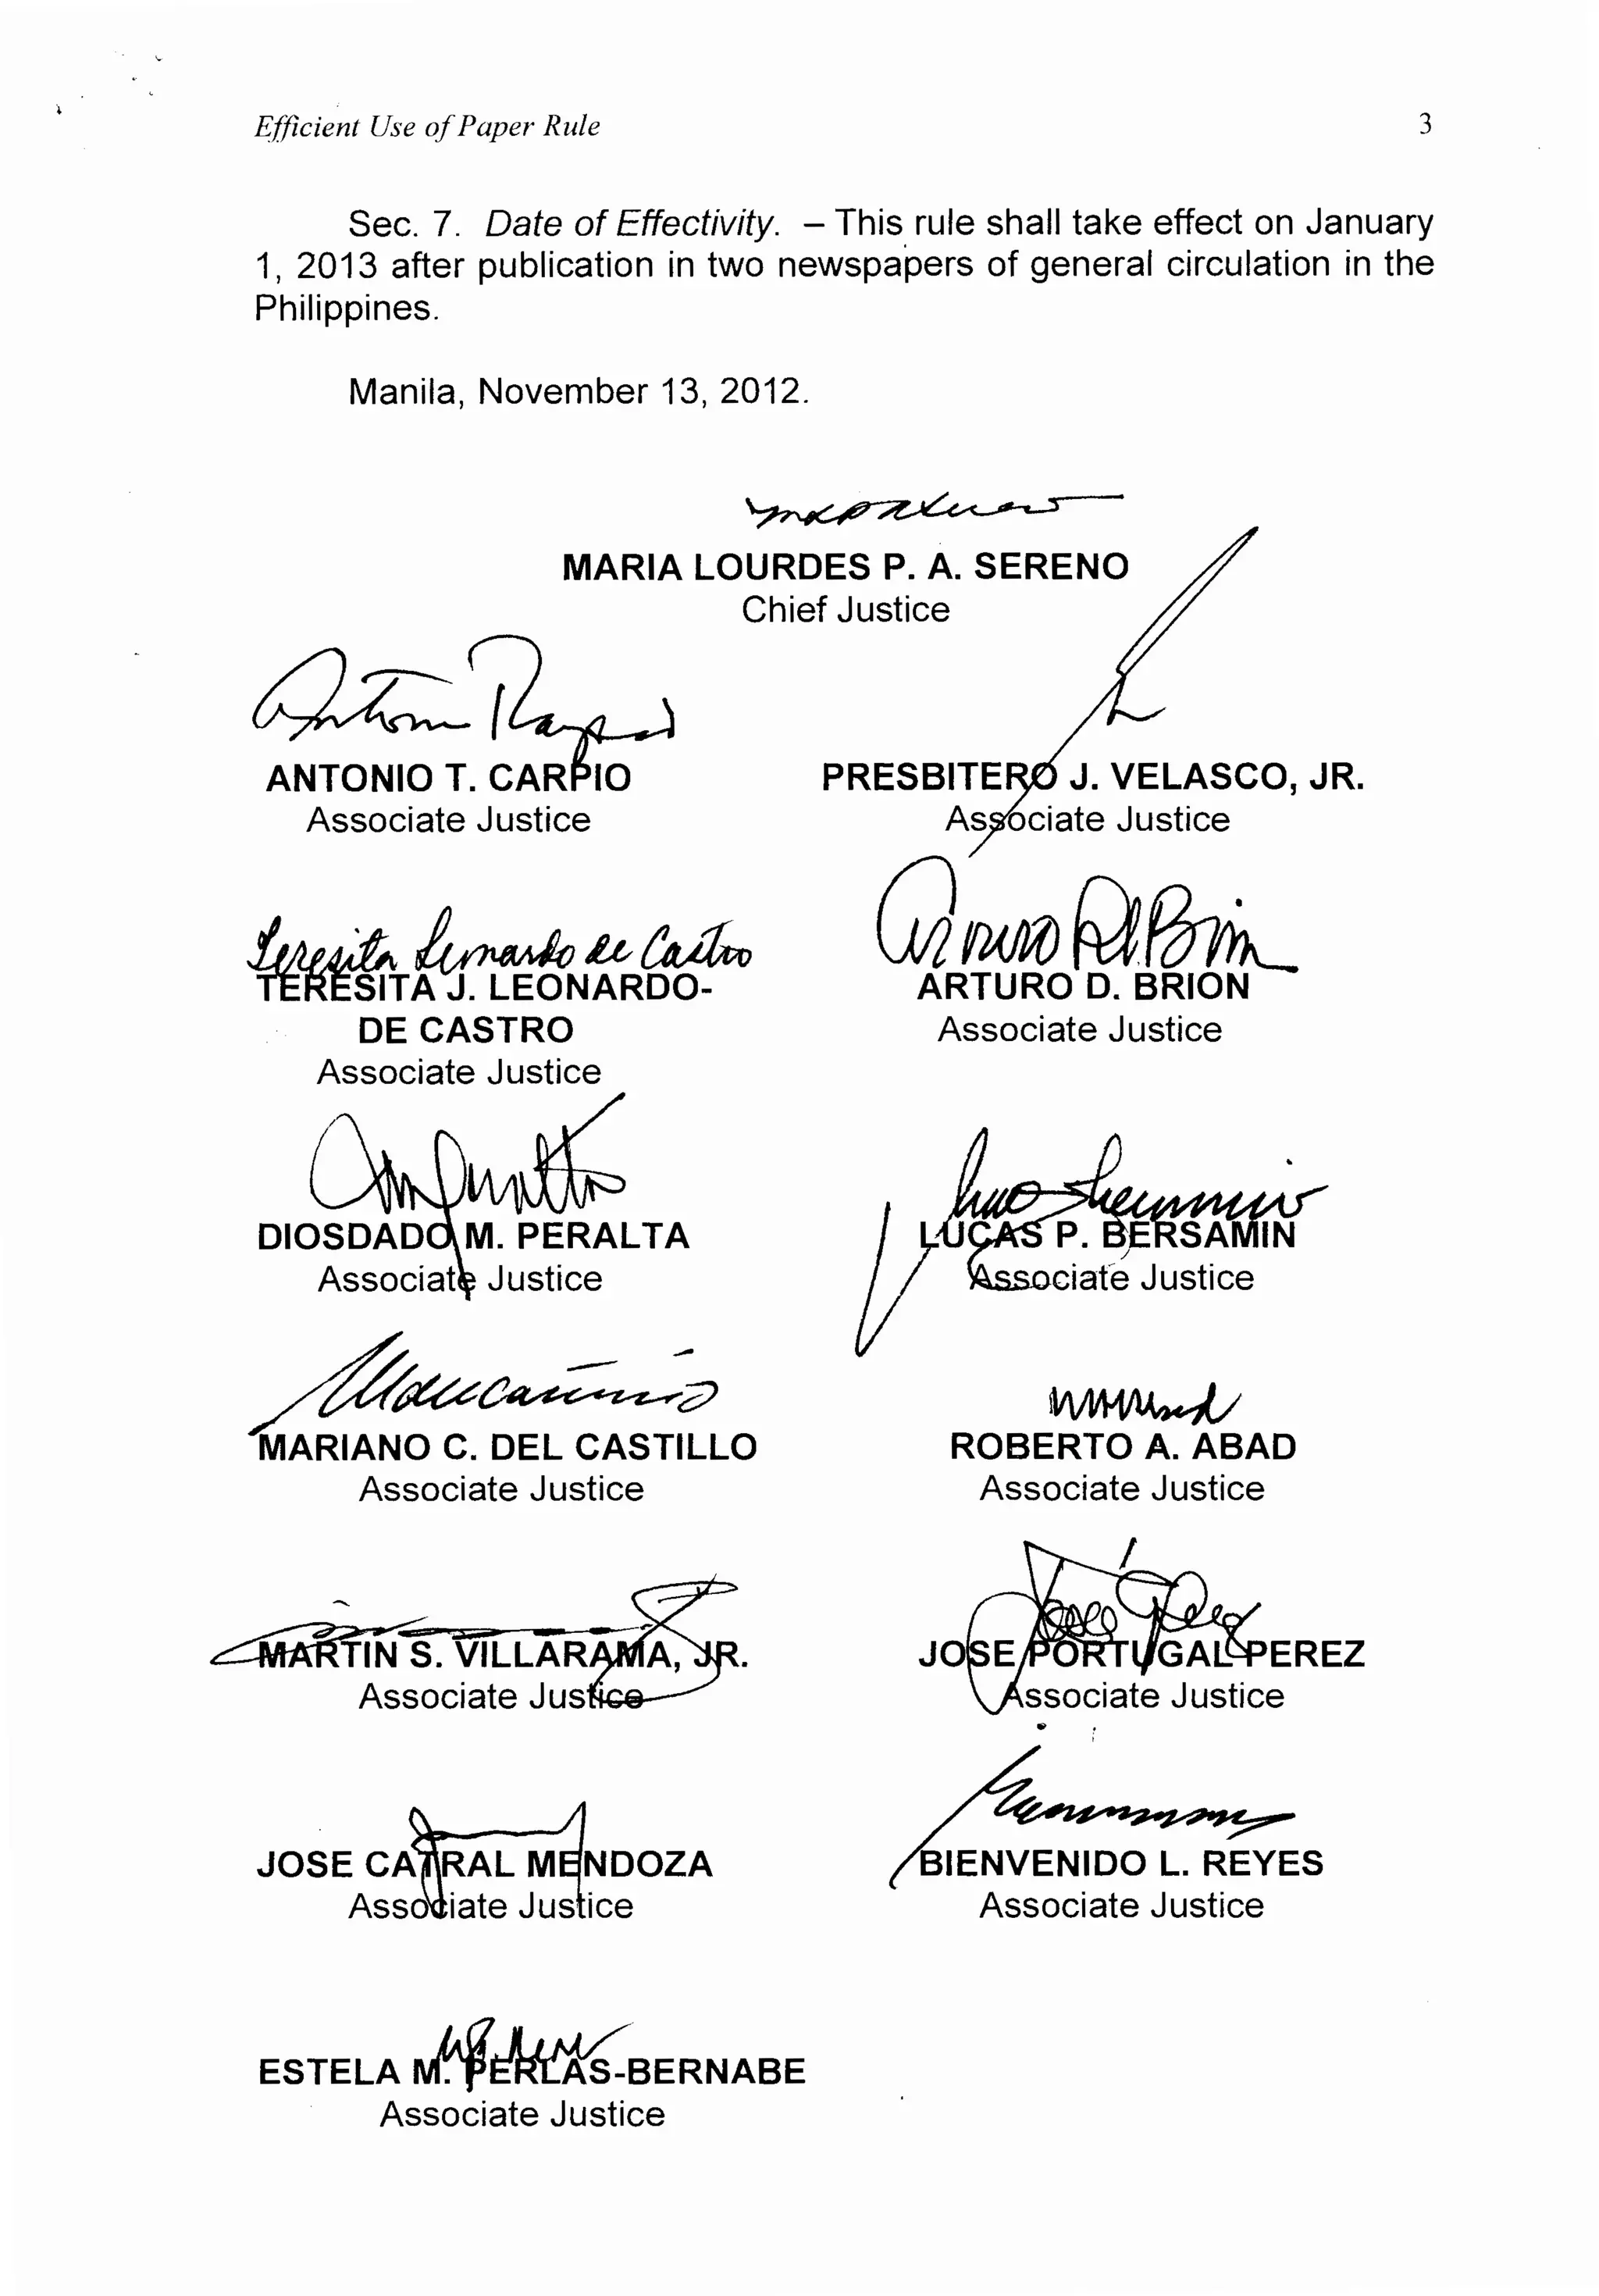 Efficient Use of Paper Rule 3
Sec. 7. Date of Effectivity. – This rule shall take effect on January
1, 2013 after publication in two newspapers of general circulation in the
Philippines.
Manila, November 13, 2012.
MARIA LOURDES P. A. SERENO
Chief Justice
ANTONIO T. CARPIO
Associate Justice
PRESBITERO J. VELASCO, JR.
Associate Justice
Teresita Leonardo de Castro
TERESITA J. LEONARDO-
DE CASTRO
Associate Justice
ARTURO D. BRION
Associate Justice
DIOSDADO M. PERALTA
Associate Justice
LUCAS P. BERSAMIN
Associate Justice
MARIANO C. DEL CASTILLO
Associate Justice
ROBERTO A. ABAD
Associate Justice
MARTIN S. VILLARAMA, JR.
Associate Justice
JOSE PORTUGAL PEREZ
Associate Justice
JOSE CATRAL MENDOZA
Associate Justice
BIENVENIDO L. REYES
Associate Justice
ESTELA M. PERLAS-BERNABE
Associate Justice